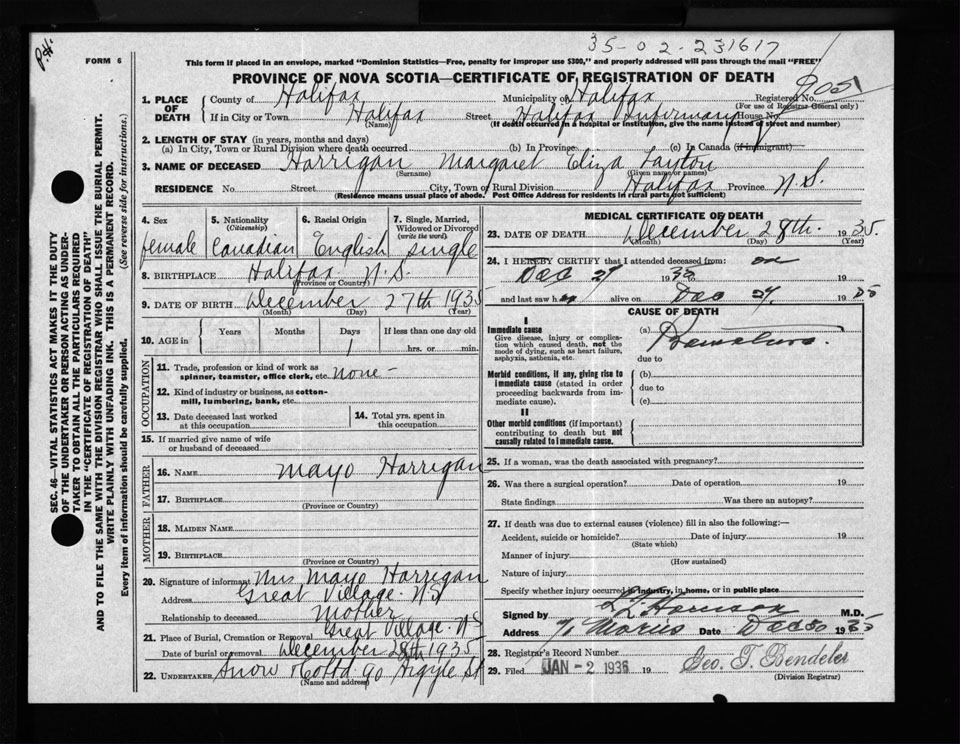 P.H.
35-02-231617
FORM 6
This form if placed in an envelope, marked "Dominion Statistics—Free, penalty for improper use $300," and properly addressed will pass through the mail "FREE"
PROVINCE OF NOVA SCOTIA—CERTIFICATE OF REGISTRATION OF DEATH
1. PLACE OF DEATH County of Halifax Municipality of Halifax Registered No. 905
(For use of Registrar General only)
If in City or Town Halifax Street Halifax Infirmary House No.
(Name) (If death occurred in a hospital or institution, give the name instead of street and number)
2. LENGTH OF STAY (in years, months and days)
(a) In City, Town or Rural Division where death occurred (b) In Province (c) In Canada (if immigrant)
3. NAME OF DECEASED Harrigan Margaret Eliza Layton
(Surname) (Given name or names)
RESIDENCE No Street City, Town or Rural Division Halifax Province N.S.
(Residence means usual place of abode. Post Office Address for residents in rural parts not sufficient)
SEC. 46—VITAL STATISTICS ACT MAKES IT THE DUTY
OF THE UNDERTAKER OR PERSON ACTING AS UNDER-
TAKER TO OBTAIN ALL THE PARTICULARS REQUIRED
IN THE "CERTIFICATE OF REGISTRATION OF DEATH"
AND TO FILE THE SAME WITH THE DIVISION REGISTRAR WHO SHALL ISSUE THE BURIAL PERMIT.
WRITE PLAINLY WITH UNFADING INK. THIS IS A PERMANENT RECORD.
Every item of information should be carefully supplied. (See reverse side for instructions.)
4. Sex female
5. Nationality (Citizenship) Canadian
6. Racial Origin English
7. Single, Married, Widowed or Divorced (write the word) single
8. BIRTHPLACE Halifax N.S.
(Province or Country)
9. DATE OF BIRTH December 27th 1935
(Month) (Day) (Year)
10. AGE in Years Months Days 1 If less than one day old
hrs. or min.
OCCUPATION
11. Trade, profession or kind of work as
spinner, teamster, office clerk, etc. none -
12. Kind of industry or business, as cotton-
mill, lumbering, bank, etc.
13. Date deceased last worked
at this occupation
14. Total yrs. spent in
this occupation
15. If married give name of wife
or husband of deceased
FATHER
16. NAME Mayo Harrigan
17. BIRTHPLACE
(Province or Country)
MOTHER
18. MAIDEN NAME
19. BIRTHPLACE
(Province or Country)
20. Signature of informant Mrs Mayo Harrigan
Address Great Village. N.S
Relationship to deceased Mother
21. Place of Burial, Cremation or Removal Great Village. N.S
Date of burial or removal December 28th 1935
22. UNDERTAKER Snow & Co Ltd 90 Argyle St
(Name and address)
MEDICAL CERTIFICATE OF DEATH
23. DATE OF DEATH December 28th. 1935.
(Month) (Day) (Year)
24. I HEREBY CERTIFY that I attended deceased from: on
Dec 29 1935 to 19
and last saw h alive on Dec 29 1935
CAUSE OF DEATH
I
Immediate cause
Give disease, injury or complica-
tion which caused death, not the
mode of dying, such as heart failure,
asphyxia, asthenia, etc.
(a)
due to
Morbid conditions, if any, giving rise to
immediate cause (stated in order
proceeding backwards from im-
mediate cause).
(b)
due to
(c)
II
Other morbid conditions (if important)
contributing to death but not
causally related to immediate cause.
25. If a woman, was the death associated with pregnancy?
26. Was there a surgical operation? Date of operation 19
State findings Was there an autopsy?
27. If death was due to external causes (violence) fill in also the following:—
Accident, suicide or homicide? Date of injury 19
(State which)
Manner of injury
(How sustained)
Nature of injury
Specify whether injury occurred in industry, in home, or in public place
Signed by Harrison M.D.
Address Date Dec 30 1935
28. Registrar's Record Number
29. Filed JAN - 2 1936 19 Geo. T. Bendeler
(Division Registrar)